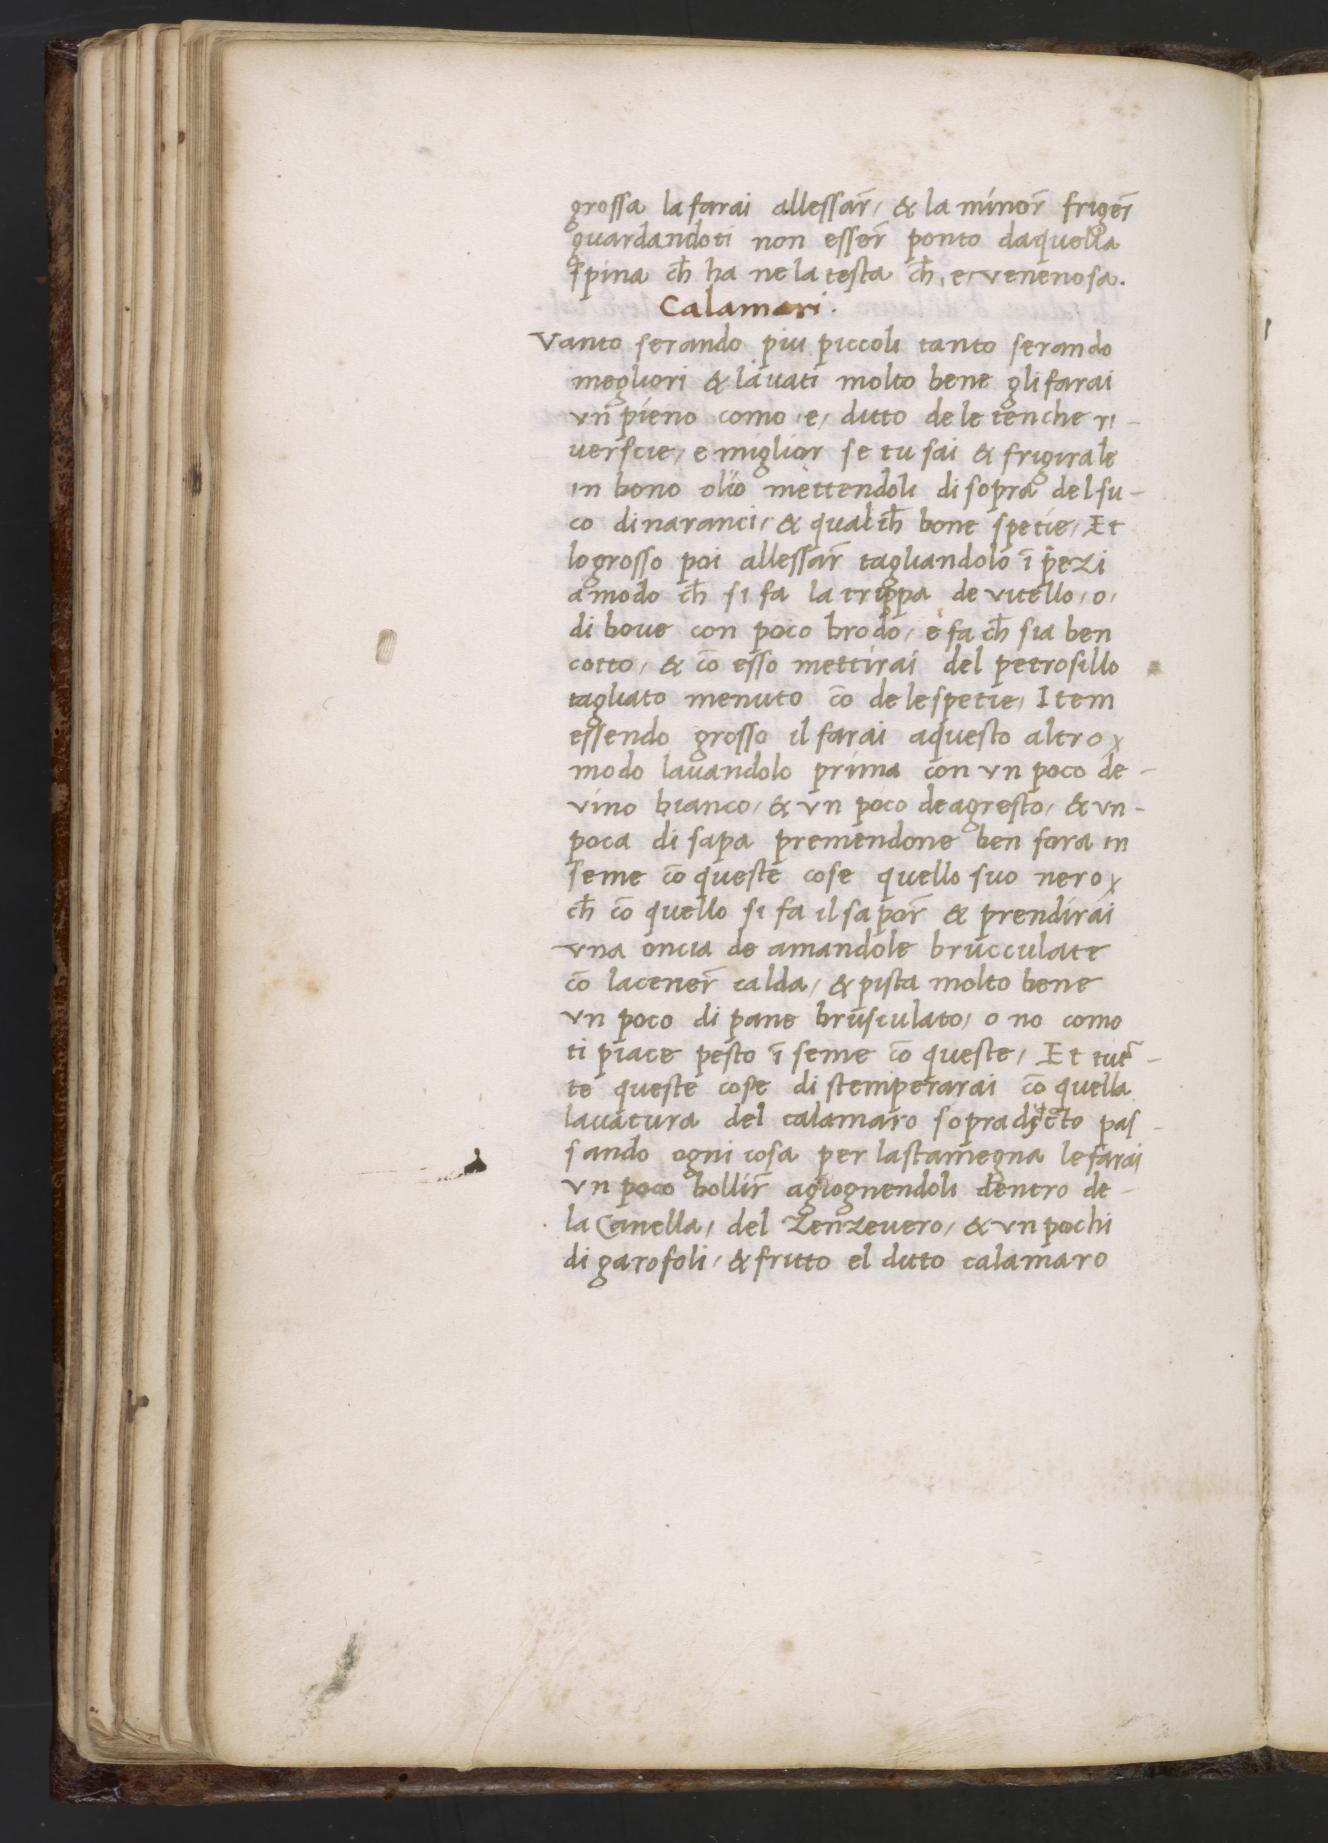 grossa la farai allessar̄, & la minor̄ friger̄
guardandoti non esser̄ ponto da quella
spina ch̄ ha ne la testa ch̄, e, venenosa.
Calamari.
Vanto serando piu piccoli tanto serando
megliori & lavati molto bene gli farai
vn pieno como, e, ditto de le tenche ri-
verscie, e miglior se tu sai & frigirale
in bono olio mettendoli di sopra del su-
co di naranci, & qualch̄ bone spetie, Et
lo grosso poi allessar̄ tagliandolo ī pezi
a modo ch̄ si fa la trippa de vitello, o,
di bove con poco brodo, e fa ch̄ sia ben
cotto, & cō esso mettirai del petrosillo
tagliato menuto cō de le spetie, Item
essendo grosso il farai aquesto altro
modo lavandolo prima con vn poco de-
vino bianco, & vn poco de agresto, & vn-
poca di sapa premendone ben fora in
seme cō queste cose quello suo nero
ch̄ cō quello si fa il sapor̄ & prendirai
vna oncia de amandole brucculate
cō la cener̄ calda, & pista molto bene
vn poco di pane brusculato, o no como
ti piace pesto ī seme cō queste, Et tut-
te queste cose di stemperarai cō quella
lavatura del calamaro sopradicto pas-
sando ogni cosa per la stamegna le farai
vn poco bollir̄ agiognendoli dentro de-
la Canella, del Zenzevero, & vn pochi
di garofoli, & fritto el ditto calamaro